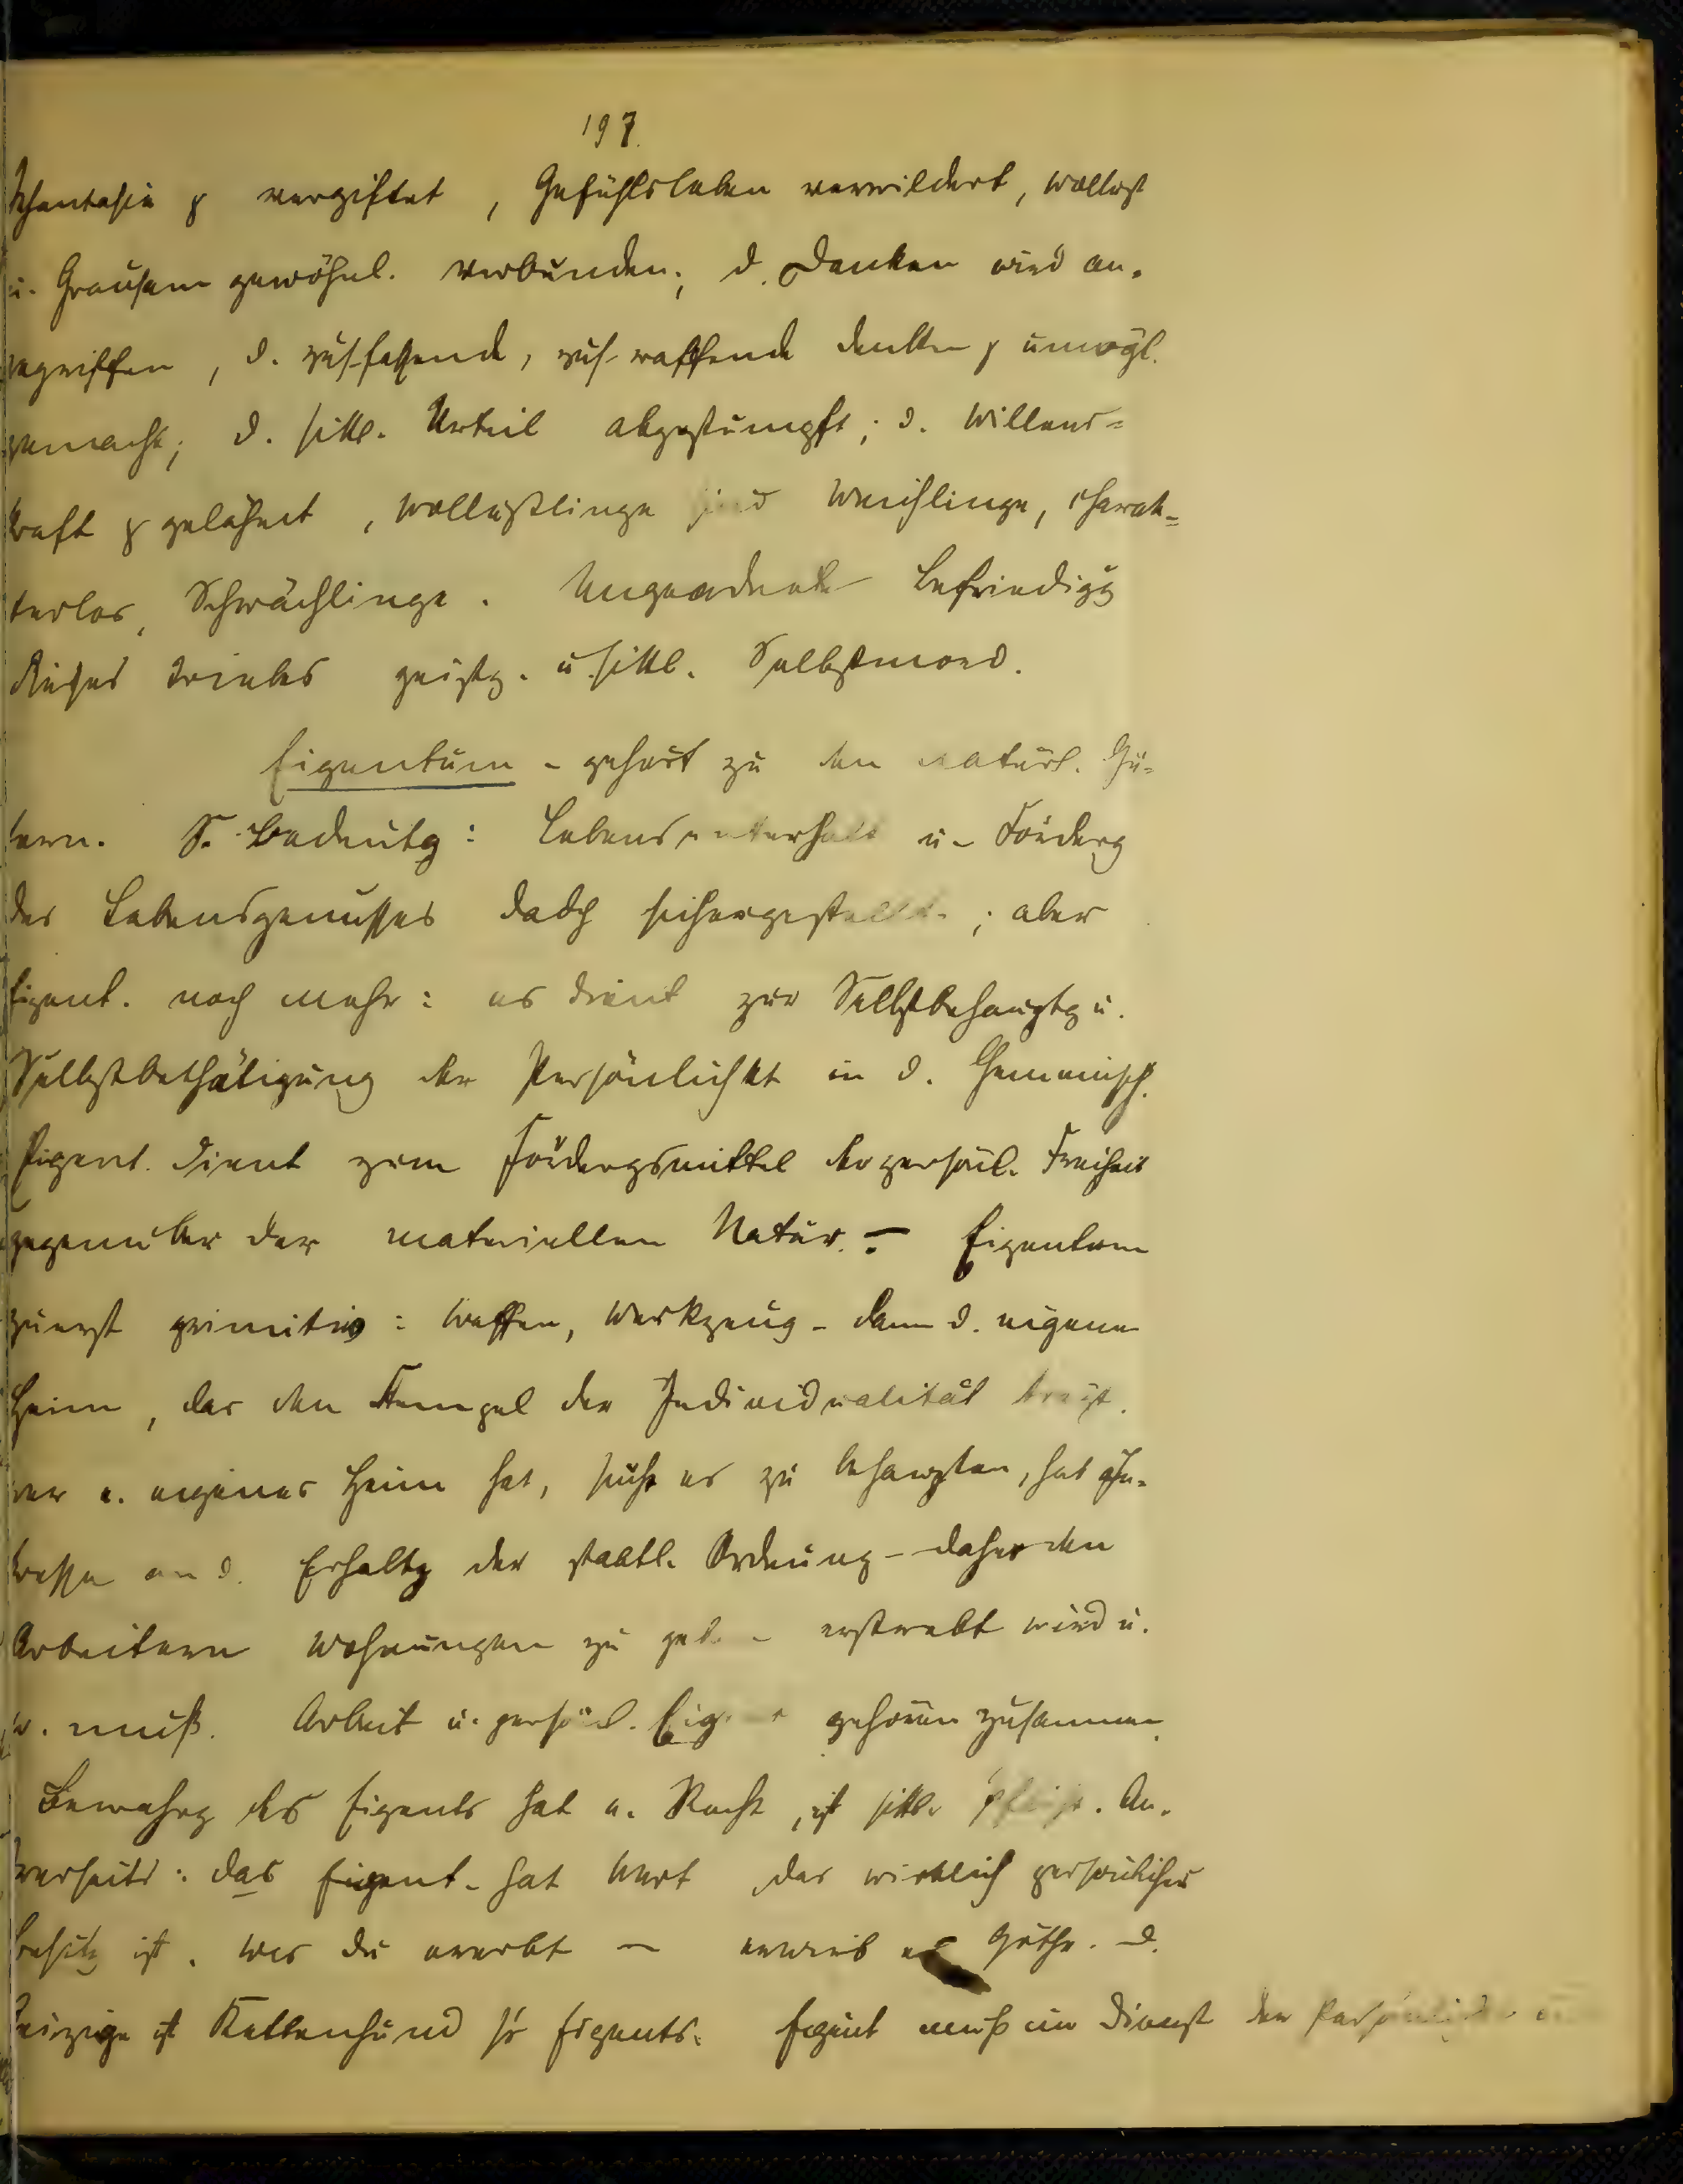 197.
Phantasie vergiftet, Gefühlsleben verwildert, Wollust
u. Grausam gewöhnl. verbunden; d. Denken wird an-
gegriffen, d. zus-fassende, zus-raffende denken unmögl.
gemacht; d. sittl. Urteil abgestumpft; d. Willens=
kraft gelähmt, Wollüstlinge sind Weichlinge, charak=
terlos, Schwächlinge. Ungeordnete Befriedigg
dieses Triebes geistg. u. sittl. Selbstmord.
Eigentum - gehört zu den natürl. Gü=
tern. S. Bedeutg: Lebensunterhalt u- Förderg
des Lebensgenusses dadch sichergestellt ; aber
Eigent. noch mehr: es dient zur Selbstbehauptg u.
Selbstbethätigung der Persönlichkt in d. Gemeinsch.
Eigent. dient zum Förderungsmittel der persönl. Freiheit
gegenüber der materiellen Natur. - Eigentum
zuerst primitiv: Waffen, Werkzeug - dann d. eigene
Heim, das den Stempel der Individualität trägt.
Wer e. eigenes Heim hat, sucht es zu behaupten, hat In-
teresse an d. Erhaltg der staatl. Ordnung - daher den
Arbeitern Wohnungen zu geben erstrebt wird u.
w. muß. Arbeit u. persönl. Eigent gehören zusammen.
Bewahrg des Eigents hat e. Recht, ist sittl. Pflicht. An-
derseits: das Eigent. hat Wert das wirklich persönlicher
Besitz ist. Was du ererbt - erwirb es Göthe. D.
Geizige ist Kettenhund sr Eigents. Eigent muß im Dienst der